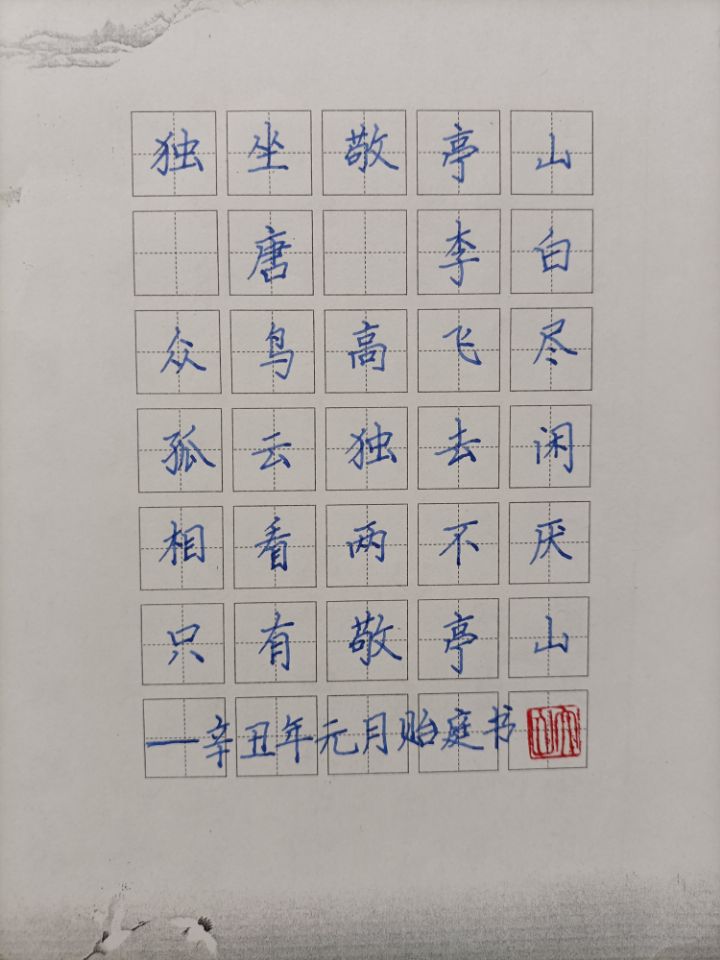 独坐敬亭山
唐 李白
众鸟高飞尽
孤云独去闲
相看两不厌
只有敬亭山
—辛丑年元月贻庭书